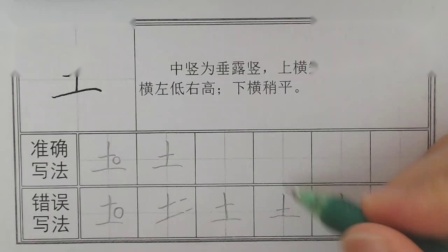 中竖为垂露竖，上横
土
横左低右高；下横稍平。
准确
写法
土 土
错误
写法
土 土 土 土